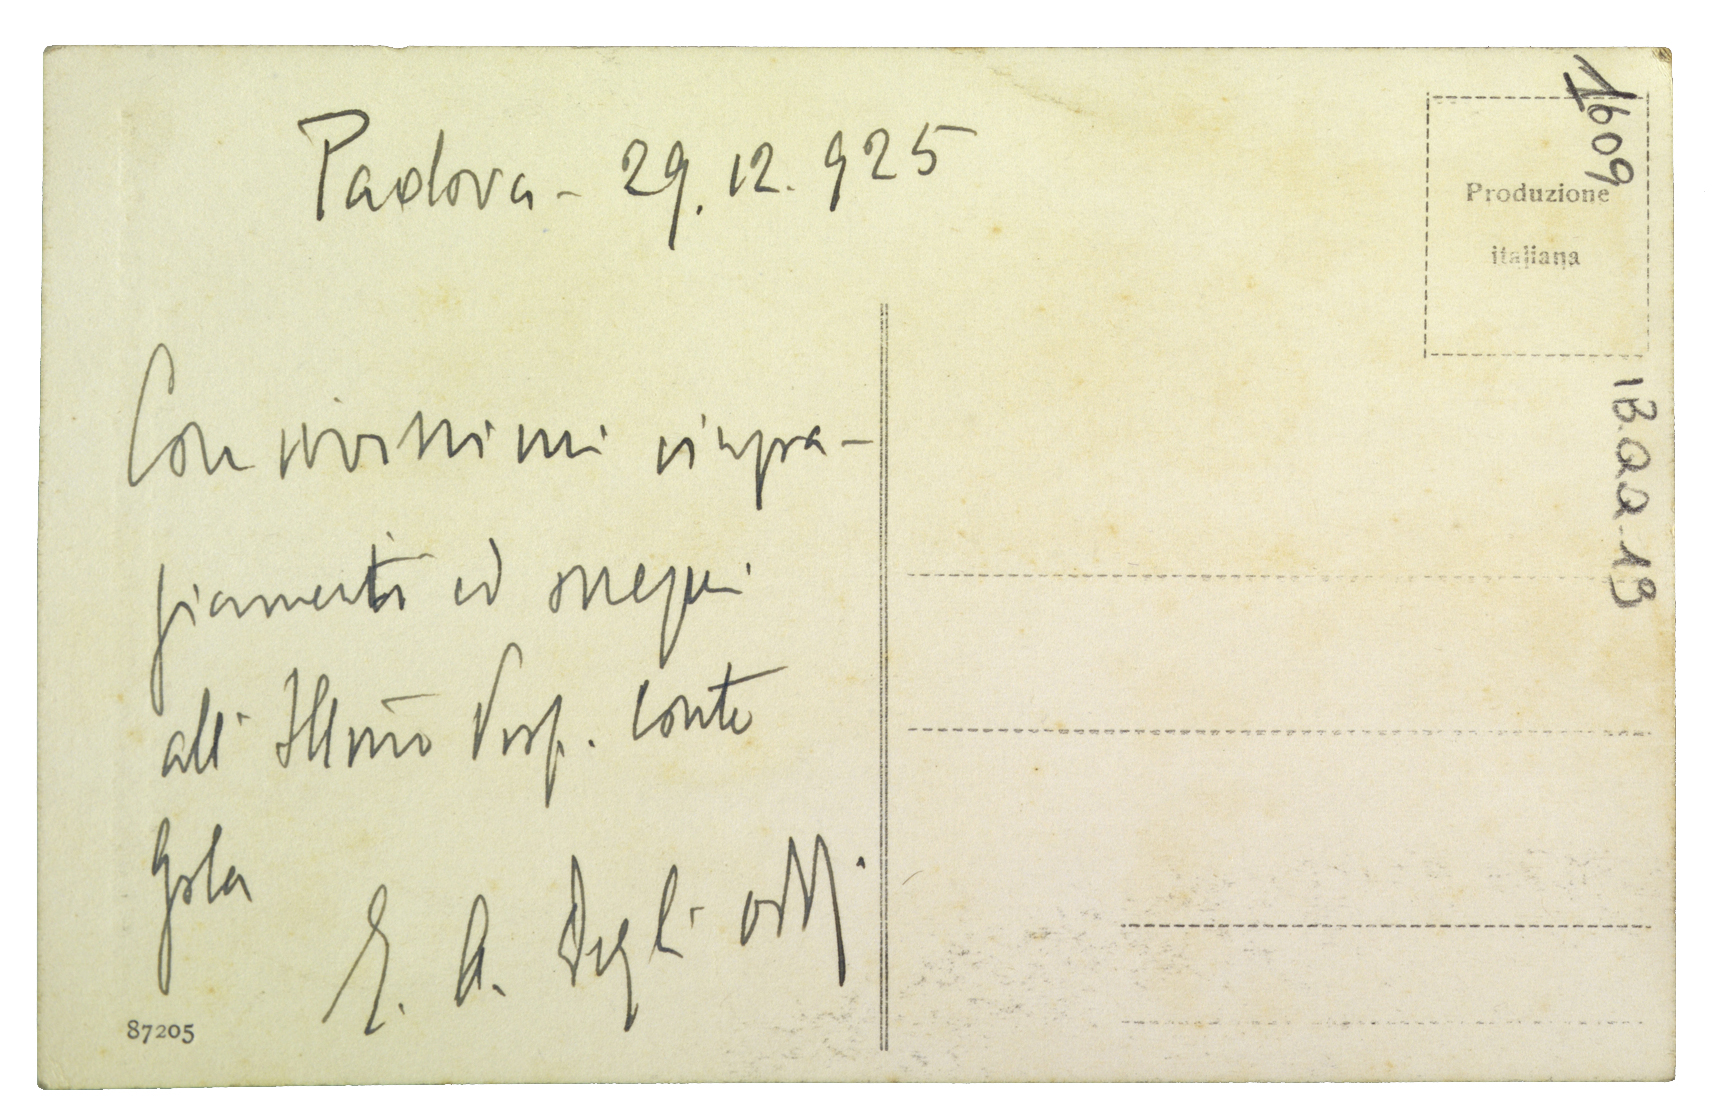 Padova - 29.12.925
Con vivissimi ringra-
ziamenti ed ossequi
all' Illmo Prof. Conte
Gola
G. A. Degli
87205
Produzione
italiana
1609
1B.aa.19